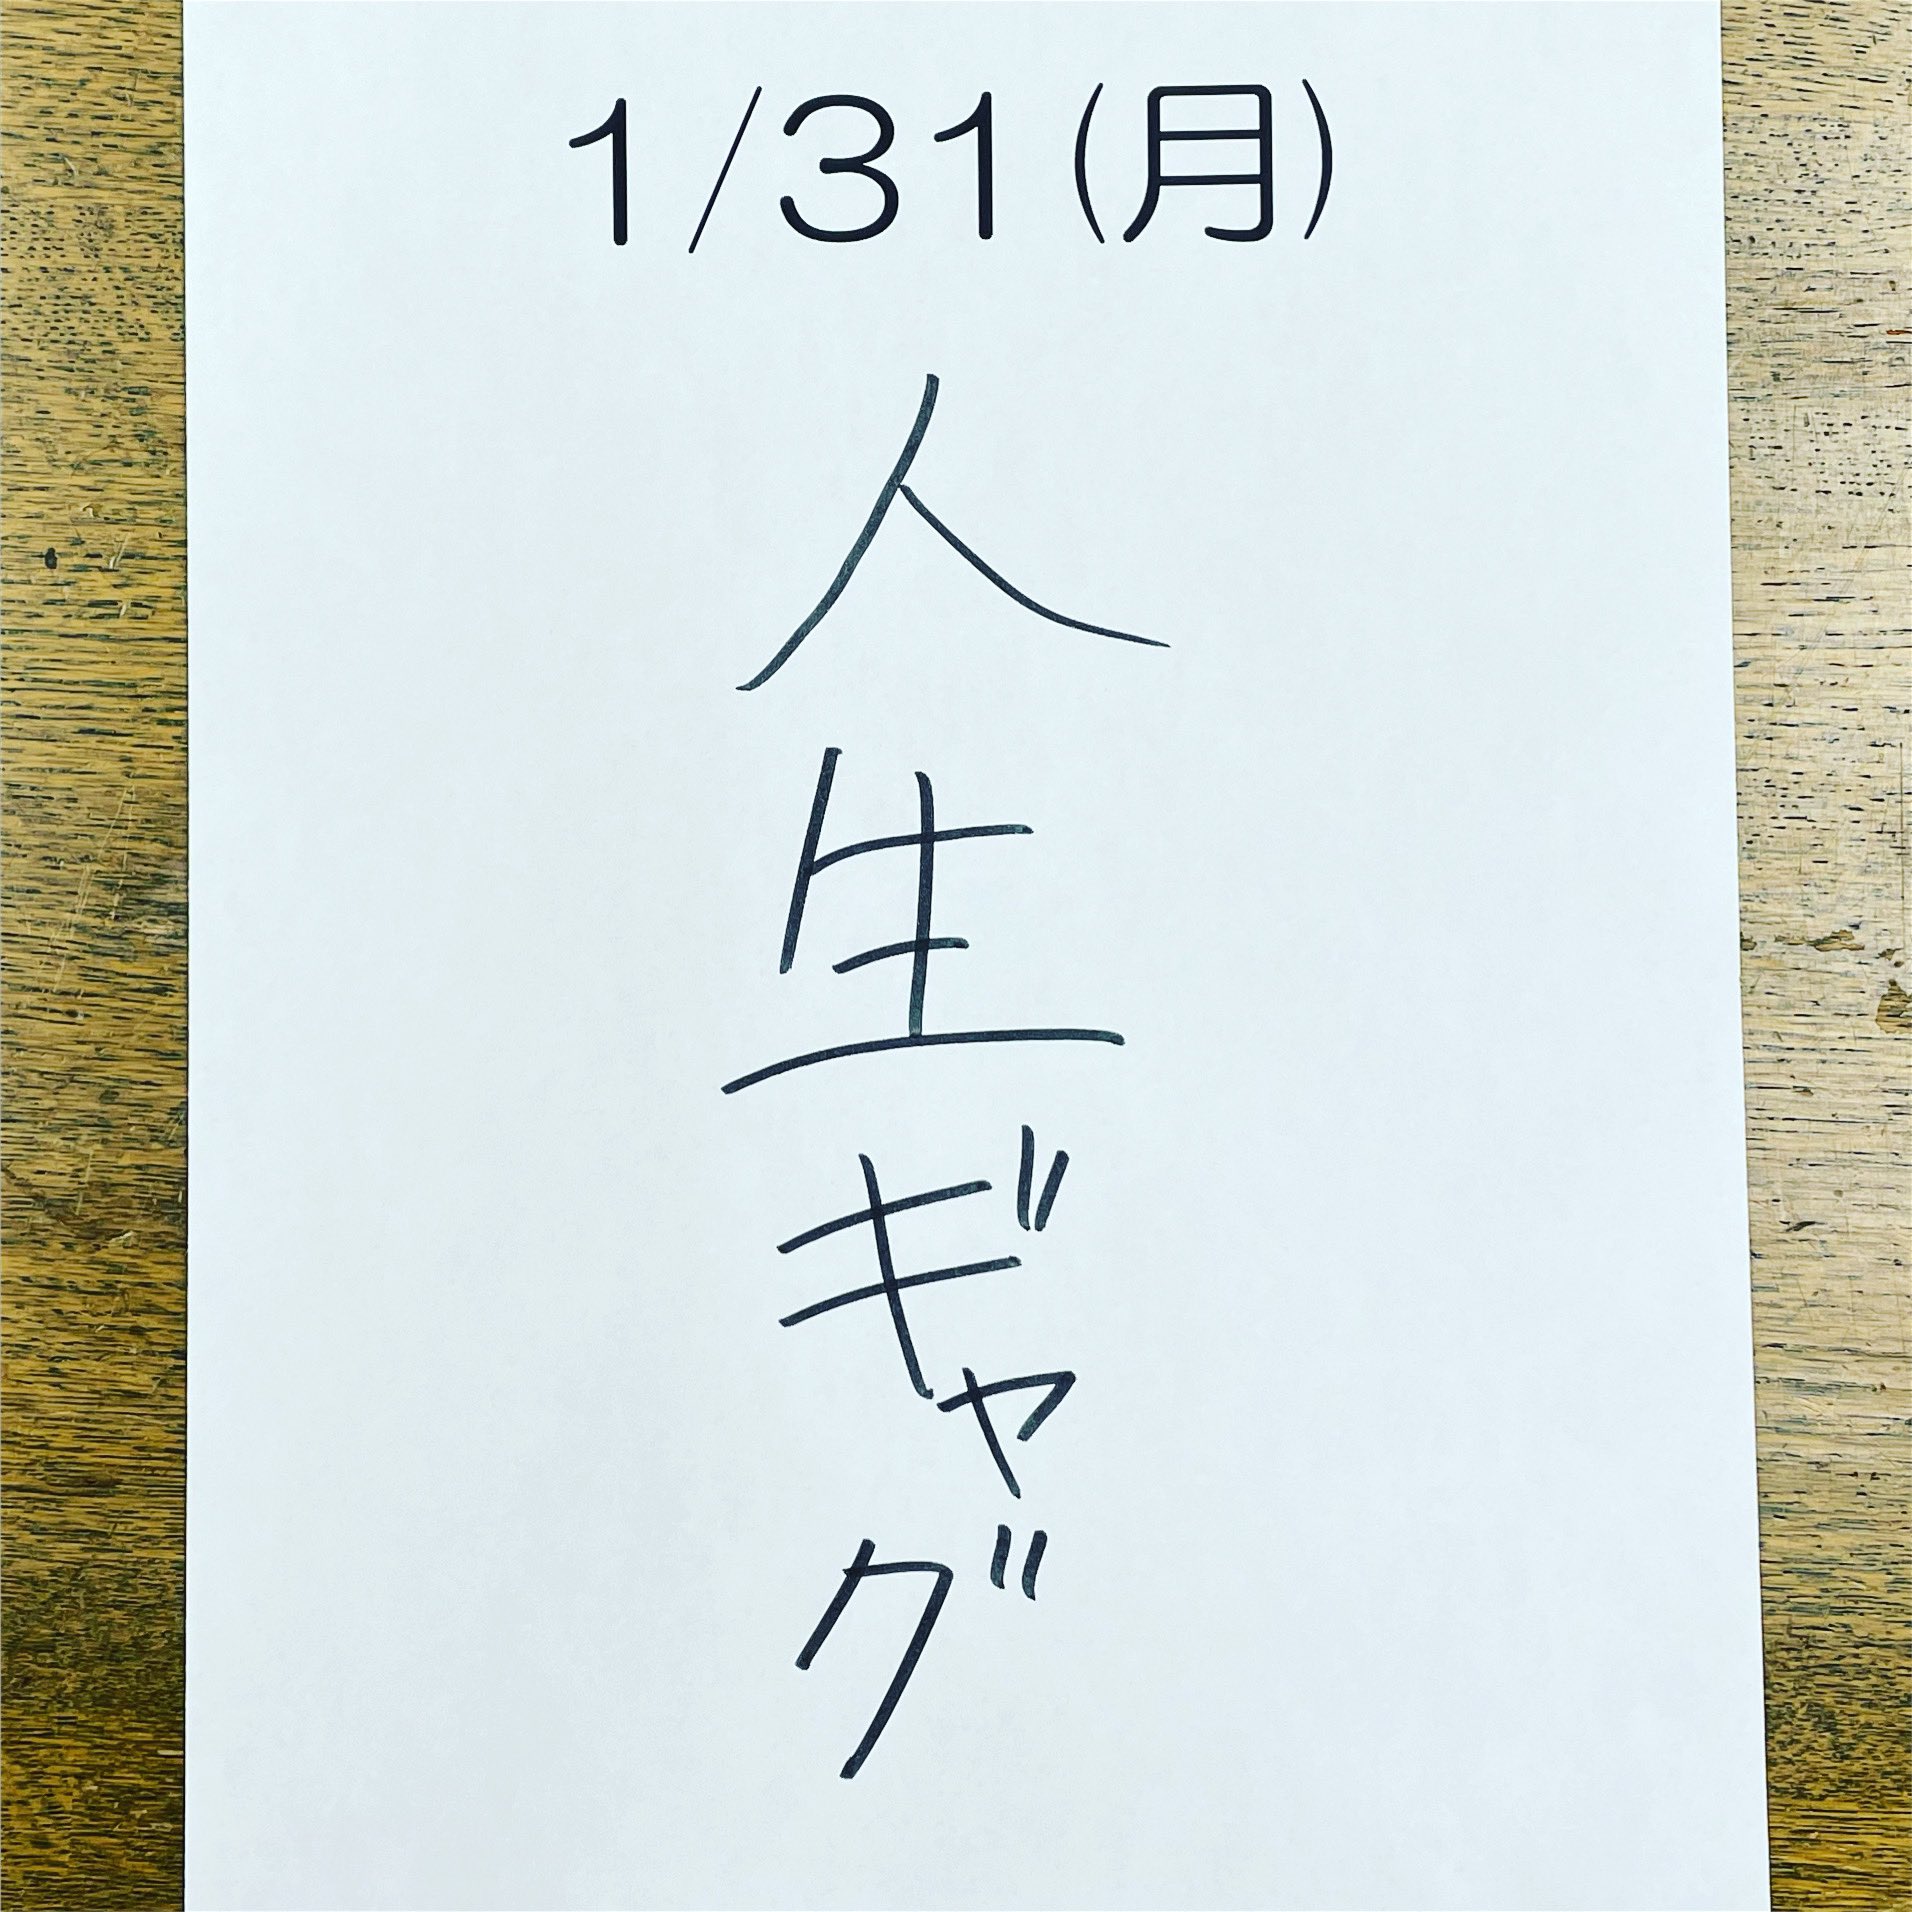 1/31(月)
人生ギャグ